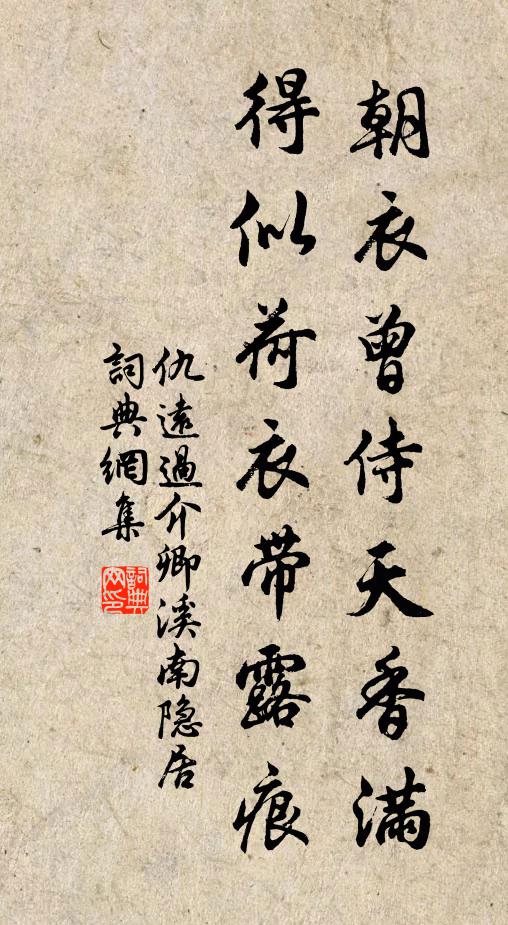 朝衣曾侍天香滿
得似荷衣带露痕
仇遠過介卿溪南隐居
詞典網集
詞典網印